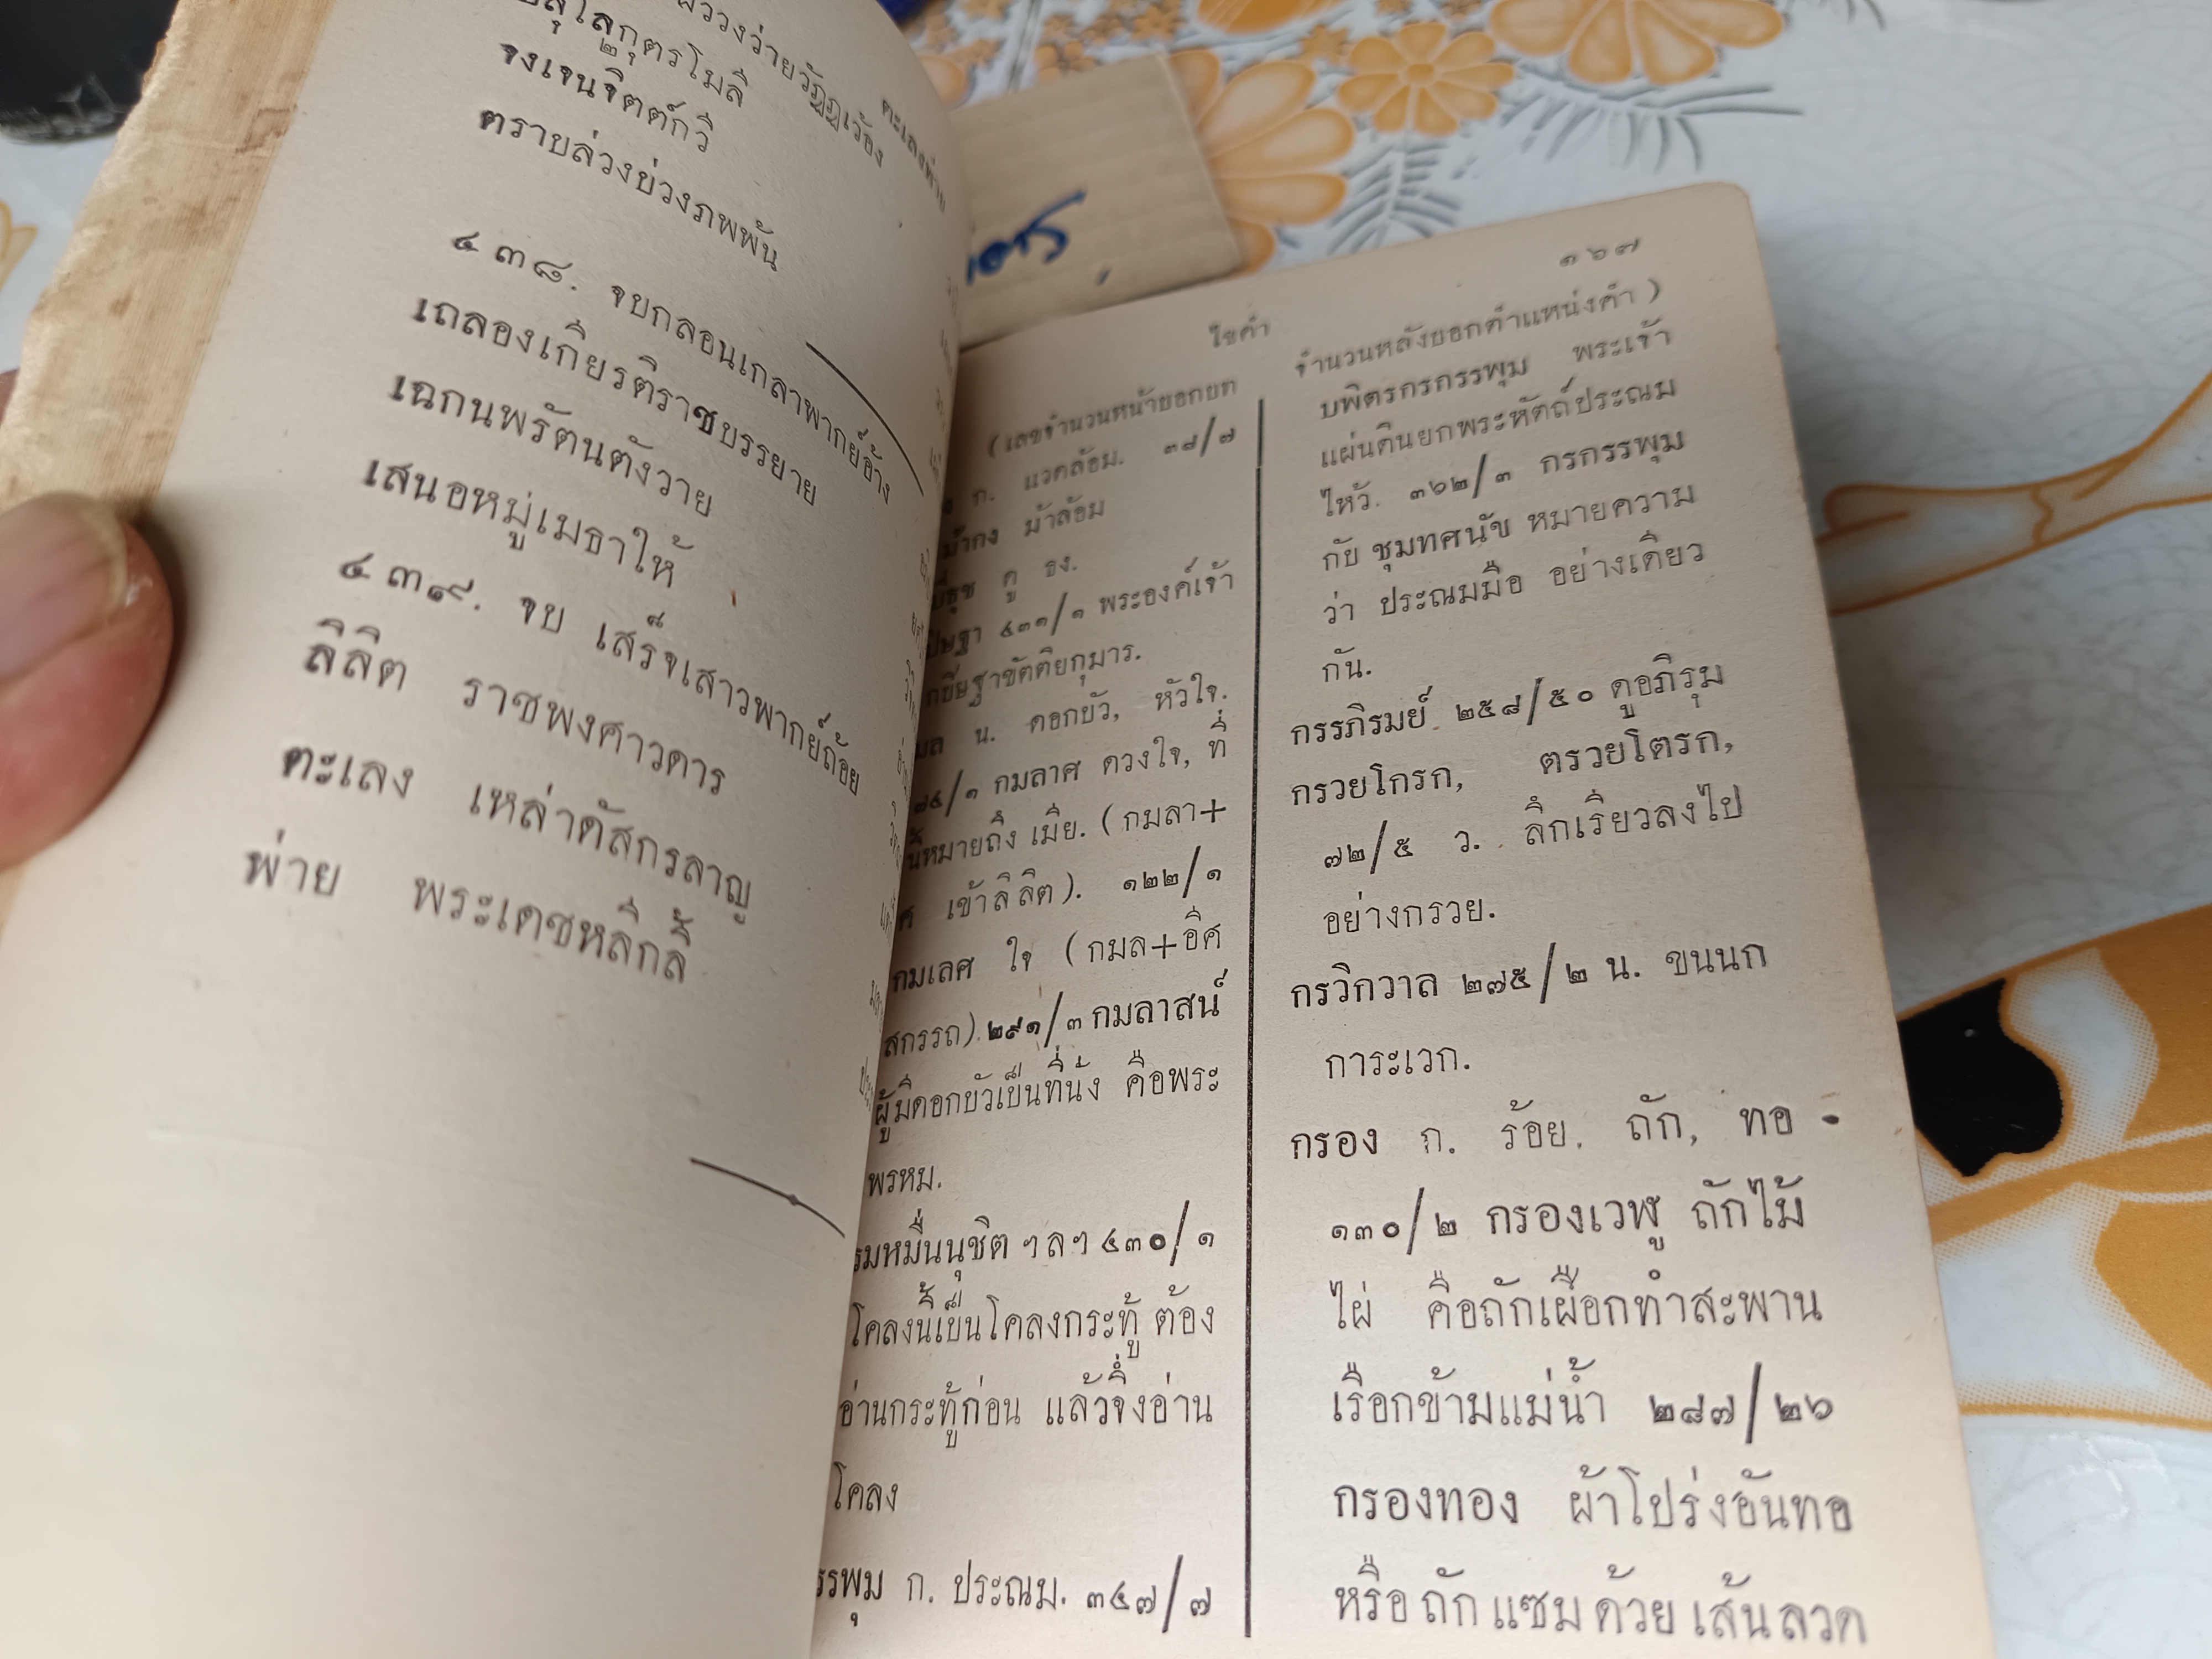 ตะเลงพ่าย
วงว่ายวัฏฏเว้อง
โลกุตรโมลี
จงเจนจิตต์กวี
ตราบล่วงบ่วงภพพ้น
๔๓๘. จบกลอนเกลาพากย์อ้าง
เถลองเกียรติราชบรรยาย
เฉกนพรัตนตังวาย
เสนอหมู่เมธาให้
๔๓๙. จบ เสร็จเสาวพากย์ถ้อย
ลิลิต ราชพงศาวดาร
ตะเลง เหล่าดัสกรลาญ
พ่าย พระเดชหลีกลี้
๑๖๗
ไขคำ
(เลขจำนวนหน้าบอกบท
จำนวนหลังบอกตำแหน่งคำ)
ก. แวดล้อม. ๓๘/๗
ม้ากง ม้าล้อม
คู ธง.
๔๓๑/๑ พระองค์เจ้า
กปิษฐาขัตติยกุมาร.
น. ดอกบัว, หัวใจ.
๗๔/๑ กมลาศ ดวงใจ, ที่
นี้หมายถึง เมีย. (กมลา+
ศ เข้าลิลิต). ๑๒๒/๑
กมเลศ ใจ (กมล+อิศ
สกรรถ). ๒๙๑/๓ กมลาสน์
ผู้มีดอกบัวเป็นที่นั่ง คือพระ
พรหม.
รมหมื่นนุชิต ฯลฯ ๔๓๐/๑
โคลงนี้เป็นโคลงกระทู้ ต้อง
อ่านกระทู้ก่อน แล้วจึ่งอ่าน
โคลง
รรพุม ก. ประณม. ๓๔๗/๗
บพิตรกรกรรพุม พระเจ้า
แผ่นดินยกพระหัตถ์ประณม
ไหว้. ๓๖๒/๓ กรกรรพุม
กับ ชุมทศนัข หมายความ
ว่า ประณมมือ อย่างเดียว
กัน.
กรรภิรมย์ ๒๕๘/๕๐ ดูอภิรุม
กรวยโกรก, ตรวยโตรก,
๗๒/๕ ว. ลึกเรียวลงไป
อย่างกรวย.
กรวิกวาล ๒๗๕/๒ น. ขนนก
การะเวก.
กรอง ก. ร้อย, ถัก, ทอ -
๑๓๐/๒ กรองเวฬู ถักไม้
ไผ่ คือถักเผือกทำสะพาน
เรือกข้ามแม่น้ำ ๒๘๗/๒๖
กรองทอง ผ้าโปร่งอันทอ
หรือถักแซมด้วยเส้นลวด